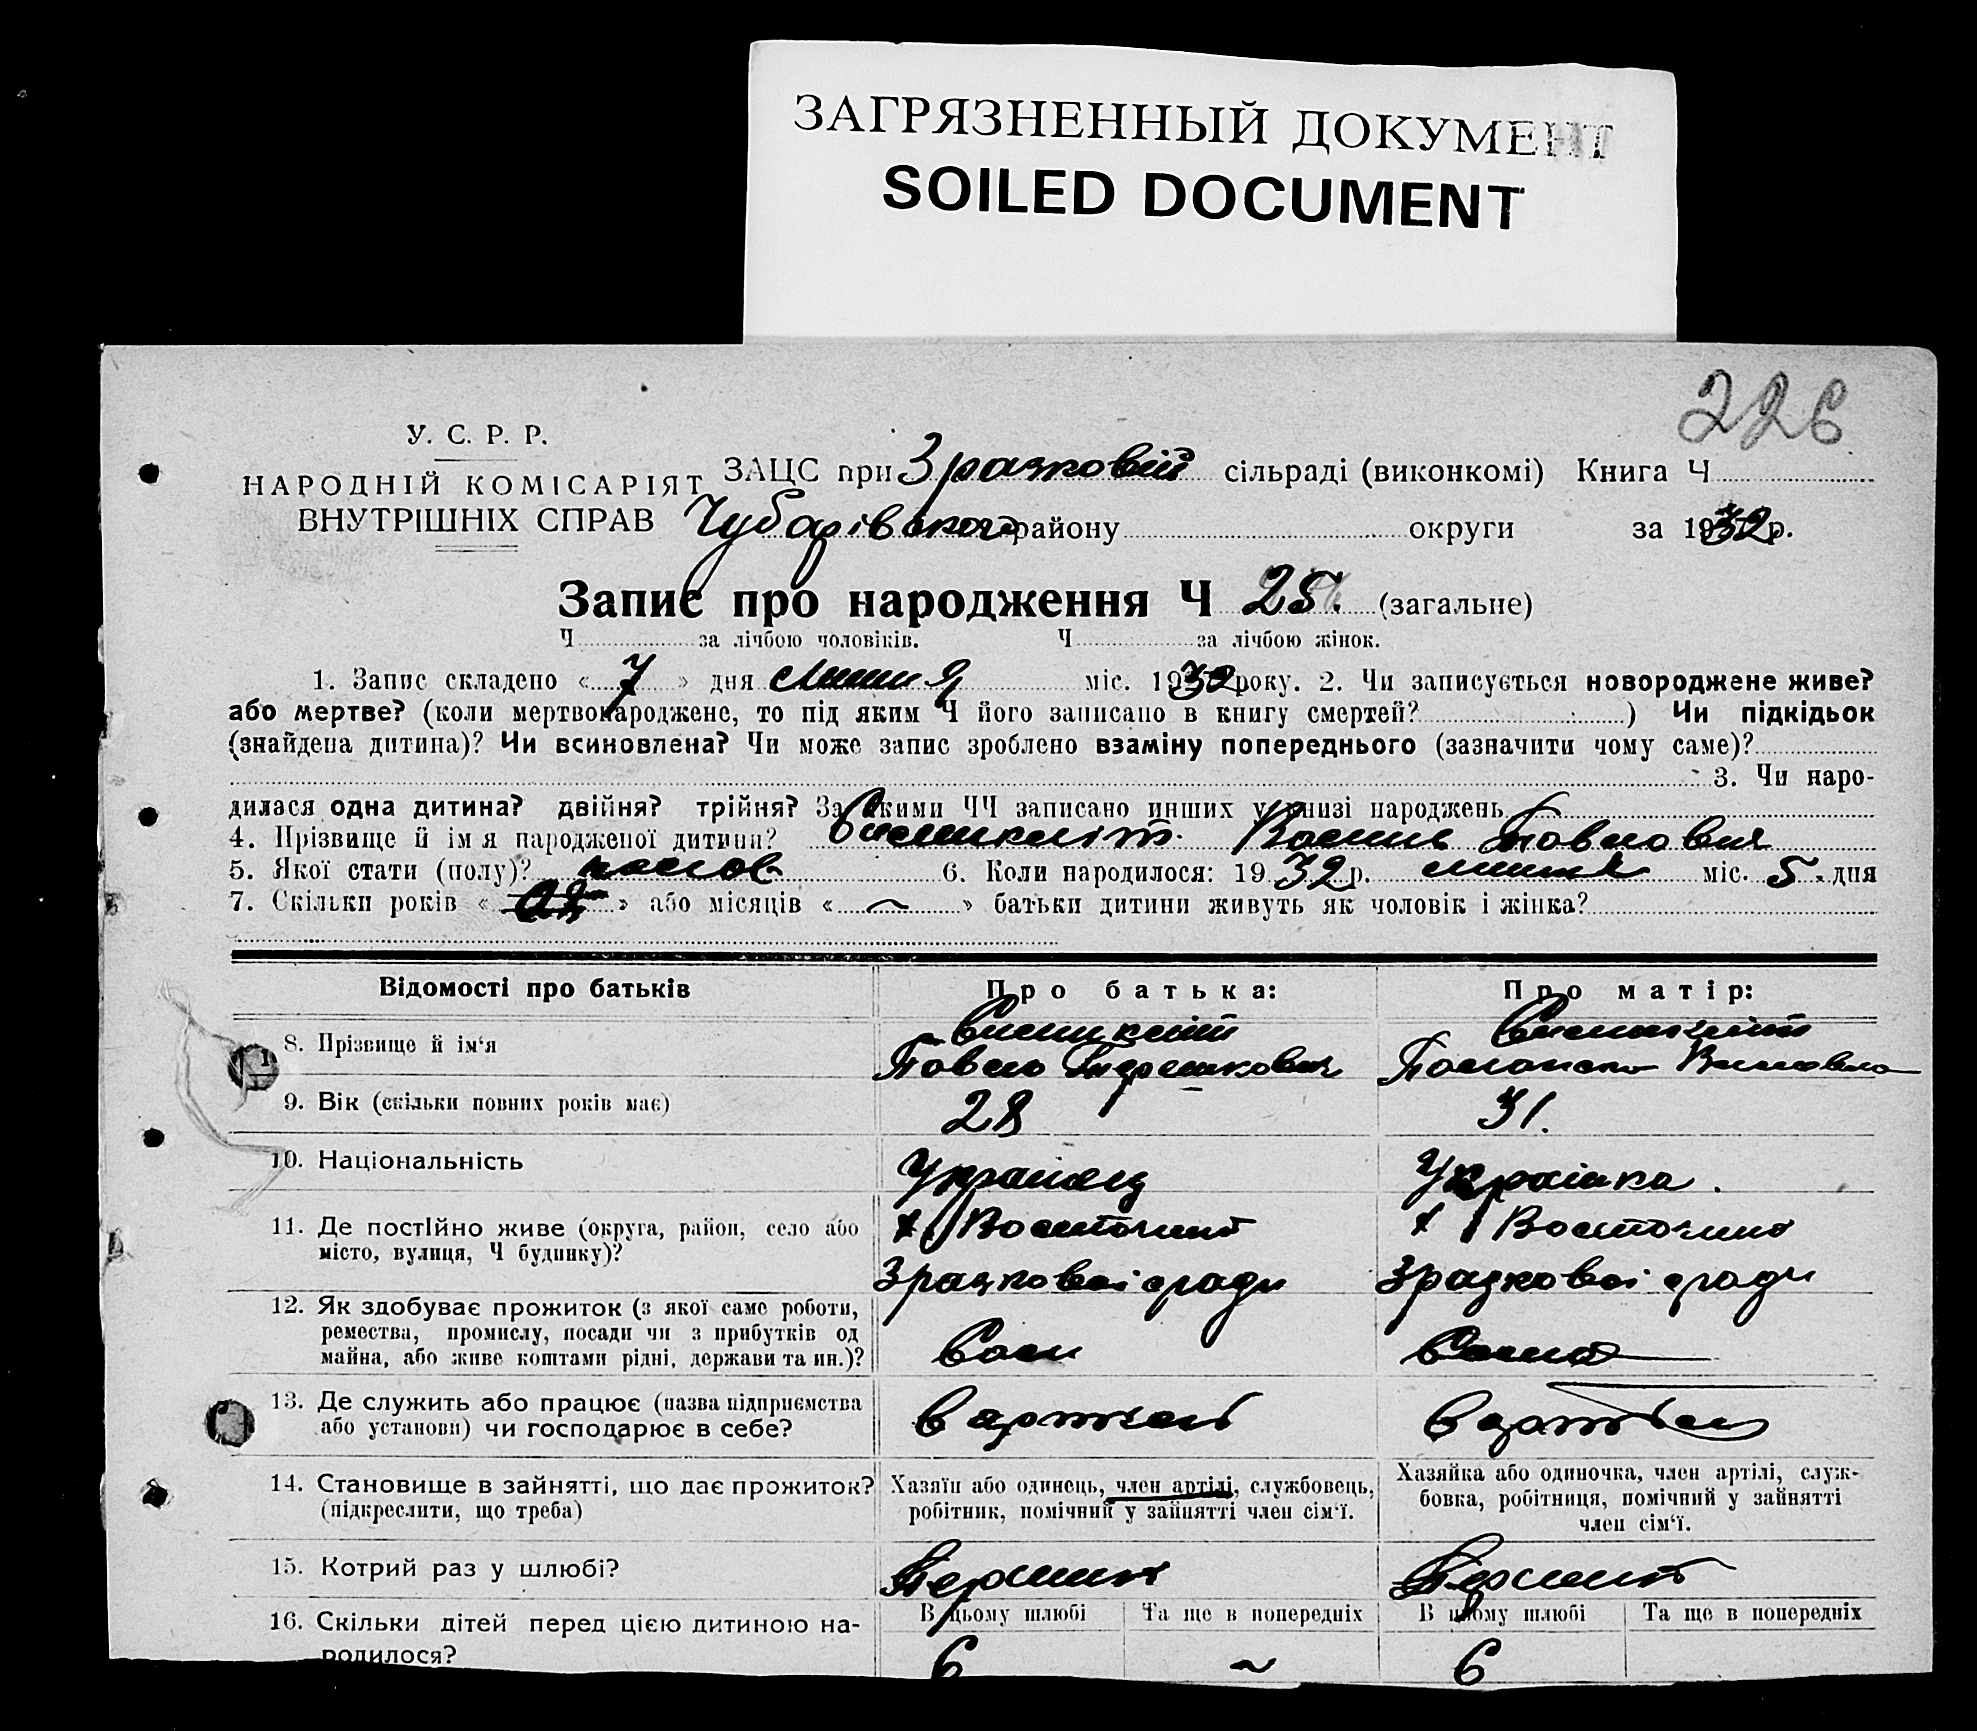 ЗАГРЯЗНЕННЫЙ ДОКУМЕНТ
SOILED DOCUMENT
226
У. С. Р. Р.
НАРОДНІЙ КОМІСАРІЯТ
ВНУТРІШНІХ СПРАВ
ЗАЦС при Зразковій сільраді (виконкомі) Книга Ч
Чубарівського району округи за 1932 р.
Запис про народження Ч 25. (загальне)
Ч за лічбою чоловіків. Ч за лічбою жінок.
1. Запис складено « 7 » дня липня міс. 1932 року. 2. Чи записується новороджене живе?
або мертве? (коли мертвонароджене, то під яким Ч його записано в книгу смертей? ) Чи підкідьок
(знайдена дитина)? Чи всиновлена? Чи може запис зроблено взаміну попереднього (зазначити чому саме)?
3. Чи наро-
дилася одна дитина? двійня? трійня? За якими ЧЧ записано инших у книзі народжень
4. Прізвище й ім я народженої дитини? Василь Павлович
5. Якої стати (полу)? 6. Коли народилося: 1932 р. липня міс. 5. дня
7. Скільки років « » або місяців « ~ » батьки дитини живуть як чоловік і жінка?
Відомості про батьків
Про батька:
Про матір:
8. Прізвище й ім'я
Павло
9. Вік (скільки повних років має)
28
31.
10. Національність
Українец
Українка.
11. Де постійно живе (округа, район, село або
місто, вулиця, Ч будинку)?
х Восточний
Зразковоі сради
х Восточний
Зразковоі сради
12. Як здобуває прожиток (з якої саме роботи,
ремества, промислу, посади чи з прибутків од
майна, або живе коштами рідні, держави та ин.)?
13. Де служить або працює (назва підприємства
або установи) чи господарює в себе?
в артілі
в артілі
14. Становище в зайнятті, що дає прожиток?
(підкреслити, що треба)
Хазяїн або одинець, член артілі, службовець,
робітник, помічний у зайнятті член сім'ї.
Хазяйка або одиночка, член артілі, служ-
бовка, робітниця, помічний у зайнятті
член сім'ї.
15. Котрий раз у шлюбі?
Перший
Перший
16. Скільки дітей перед цією дитиною на-
родилося?
В цьому шлюбі
Та ще в попередніх
В цьому шлюбі
Та ще в попередніх
6
~
6